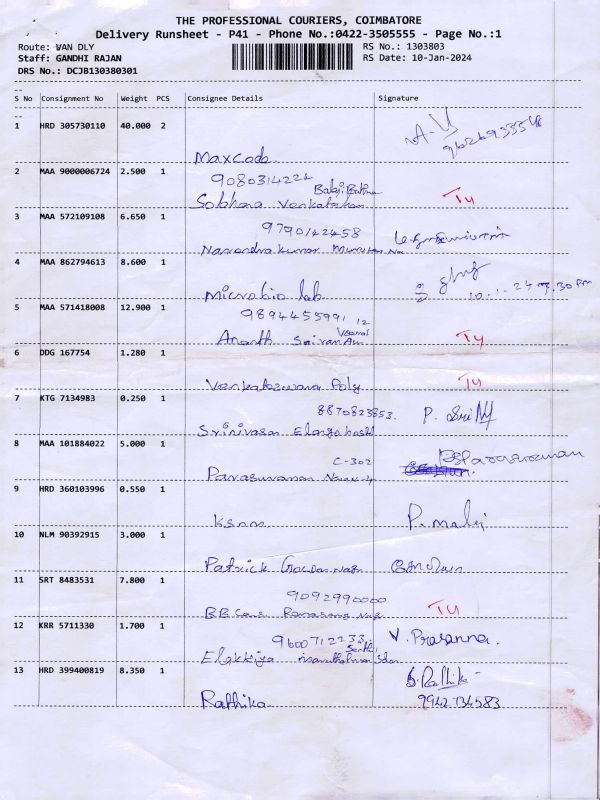 THE PROFESSIONAL COURIERS, COIMBATORE
Delivery Runsheet - P41 - Phone No.:0422-3505555 - Page No.:1
Route: VAN DLY
RS No.: 1303803
Staff: GANDHI RAJAN
RS Date: 10-Jan-2024
DRS No.: DCJB130380301
S No Consignment No Weight PCS Consignee Details Signature
1 HRD 305730110 40.000 2
Maxcode
2 MAA 9000006724 2.500 1
9080314224
Sobhana Venkatesan Ty
3 MAA 572109108 6.650 1
9790142458
Narendrakumar
4 MAA 862794613 8.600 1
Microbio lab 10.1.24 7.30 Pm
5 MAA 571418008 12.900 1
9894455991 12
Ananth Sairam Ty
6 DDG 167754 1.280 1
Venkateswara Poly Ty
7 KTG 7134983 0.250 1
8870823853. P.
Srinivasan
8 MAA 101884022 5.000 1
C-302
Parasuraman
9 HRD 360103996 0.550 1
KSNM P. malij
10 NLM 90392915 3.000 1
Patrick
11 SRT 8483531 7.800 1
9092990000
BB Cans Ty
12 KRR 5711330 1.700 1
9600712233. V. Prasanna.
Elakkiya
13 HRD 399400819 8.350 1
S. Rathika
Rathika 9942734583